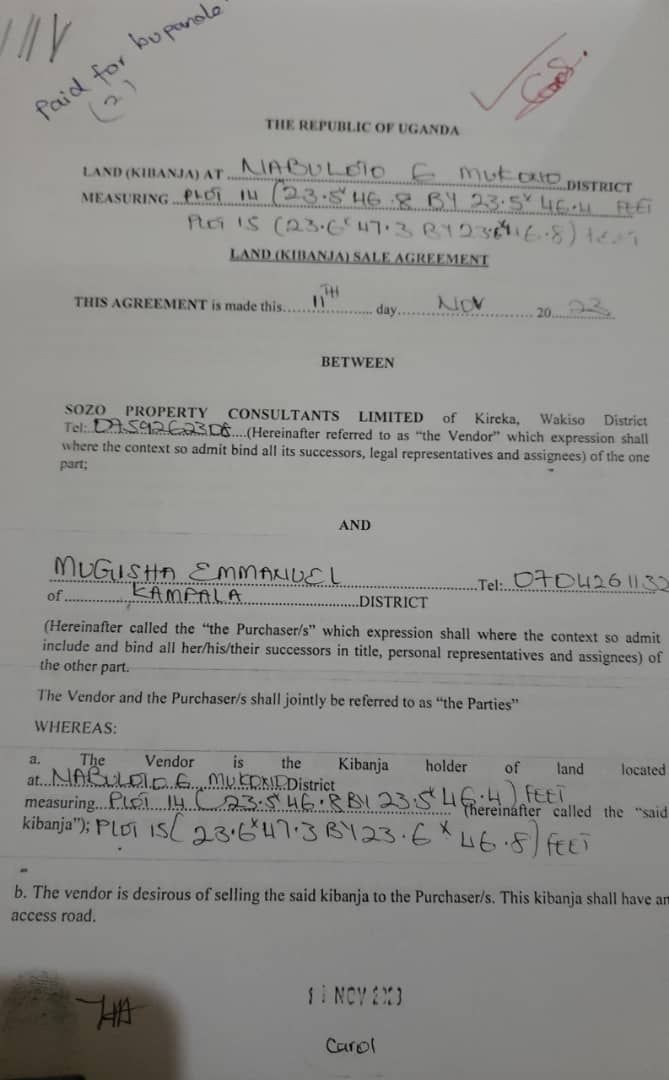 Paid for bupande
(2)
THE REPUBLIC OF UGANDA
LAND (KIBANJA) AT NABULOTO G MUKONO DISTRICT
MEASURING PLOT 14 (23.5 x 46.8 BY 23.5 x 46.4 FEET
PLOT 15 (23.6 x 47.3 BY 23.6 x 46.8) feet
LAND (KIBANJA) SALE AGREEMENT
THIS AGREEMENT is made this 11TH day NOV 20 23
BETWEEN
SOZO PROPERTY CONSULTANTS LIMITED of Kireka, Wakiso District
Tel: 0759262308 (Hereinafter referred to as “the Vendor” which expression shall
where the context so admit bind all its successors, legal representatives and assignees) of the one
part;
AND
MUGISHA EMMANUEL Tel: 0704261132
of KAMPALA DISTRICT
(Hereinafter called the “the Purchaser/s” which expression shall where the context so admit
include and bind all her/his/their successors in title, personal representatives and assignees) of
the other part.
The Vendor and the Purchaser/s shall jointly be referred to as “the Parties”
WHEREAS:
a. The Vendor is the Kibanja holder of land located
at NABULOTO G MUKONO District
measuring PLOT 14 (23.5 x 46.8 BY 23.5 x 46.4) FEET (hereinafter called the “said
kibanja”); PLOT 15 (23.6 x 47.3 BY 23.6 x 46.8) FEET
b. The vendor is desirous of selling the said kibanja to the Purchaser/s. This kibanja shall have an
access road.
NOV
Carol